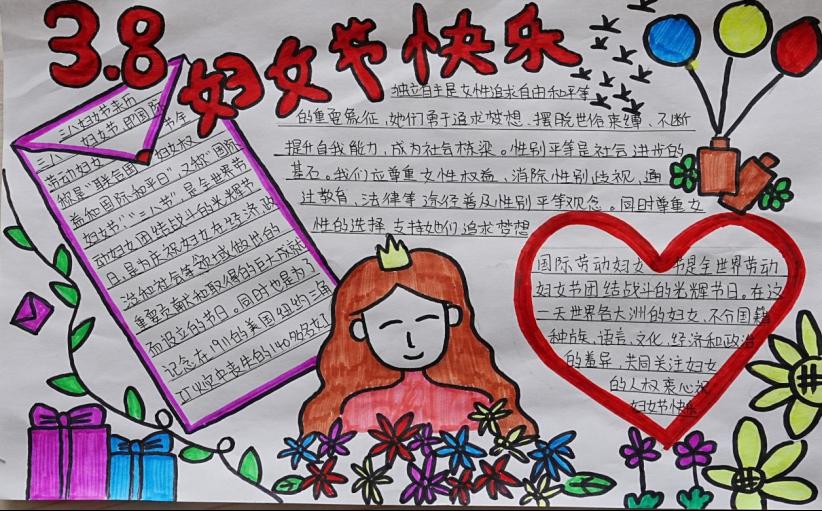 3.8妇女节快乐
三八妇女节来历
三八妇女节即国际
劳动妇女
称是"联合国妇女权
益和国际和平日"又称"国际
妇女节""三八节"是全世界劳
动妇女团结战斗的光辉节
日,是为庆祝妇女在经济、政
治和社会等领域做出的
重要贡献和取得的巨大成就
而设立的节日。同时也是为了
记念在1911的美国纽约三角
工火灾中丧生的140多名女
独立自主是女性追求自由和平等
的重要象征,她们勇于追求梦想、摆脱世俗束缚、不断
提升自我能力,成为社会栋梁。性别平等是社会进步的
基石。我们应尊重女性权益、消除性别歧视,通
过教育、法律等途径普及性别平等观念。同时尊重女
性的选择,支持她们追求梦想
国际劳动妇女节是全世界劳动
妇女节团结战斗的光辉节日。在这
一天世界各大洲的妇女,不分国籍
种族、语言、文化、经济和政治
的差异,共同关注妇女
的人权衷心祝
妇女节快乐